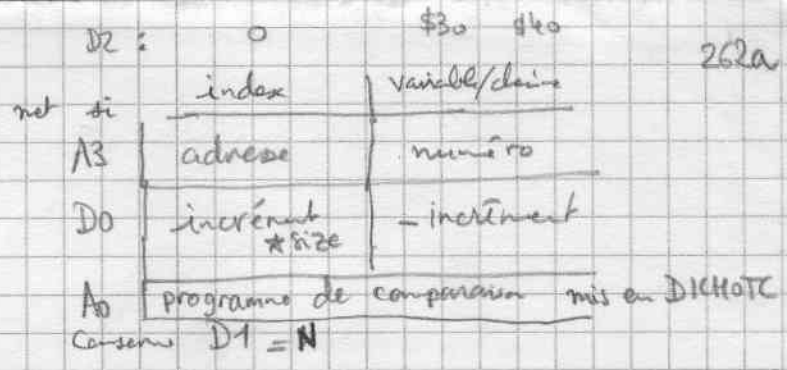 D2 : 0 $30 $40
262a
index variable/chaine
met si
A3 adresse numéro
D0 incrément - incrément
*size
A0 programme de comparaison mis en DICHOTC
Conserve D1 = N